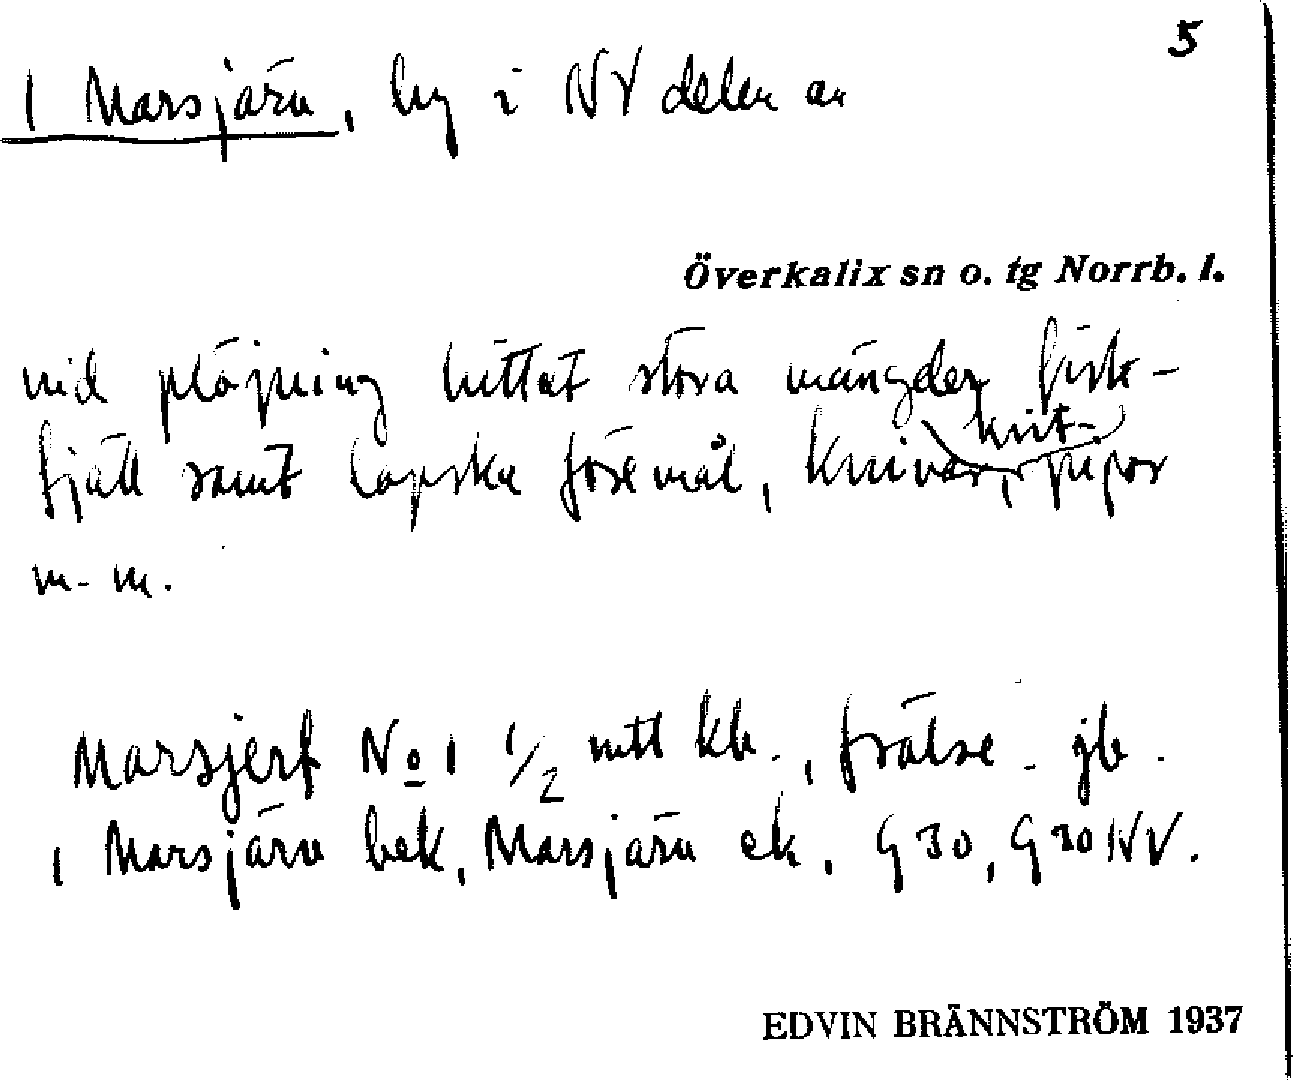 5
1 Marsjärv, by i NV delen av
Överkalix sn o. tg Norrb. l.
vid plöjning hittat stora mängder fisk-
fjäll samt lapska föremål, knivar, krit-pipor
m. m.
Marsjerf No 1 1/2 mtl kb., frälse. jb.
1 Marsjärv bek, Marsjärv ek. G 30, G 30 NV.
EDVIN BRÄNNSTRÖM 1937